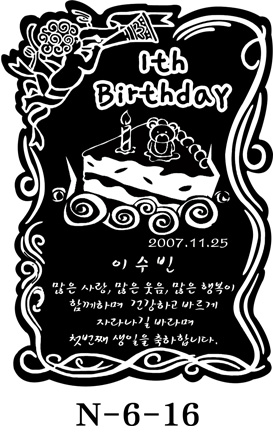 1th
Birthday
2007.11.25
이 수 빈
많은 사랑, 많은 웃음, 많은 행복이
함께하며 건강하고 바르게
자라나길 바라며
첫번째 생일을 축하합니다.
N-6-16